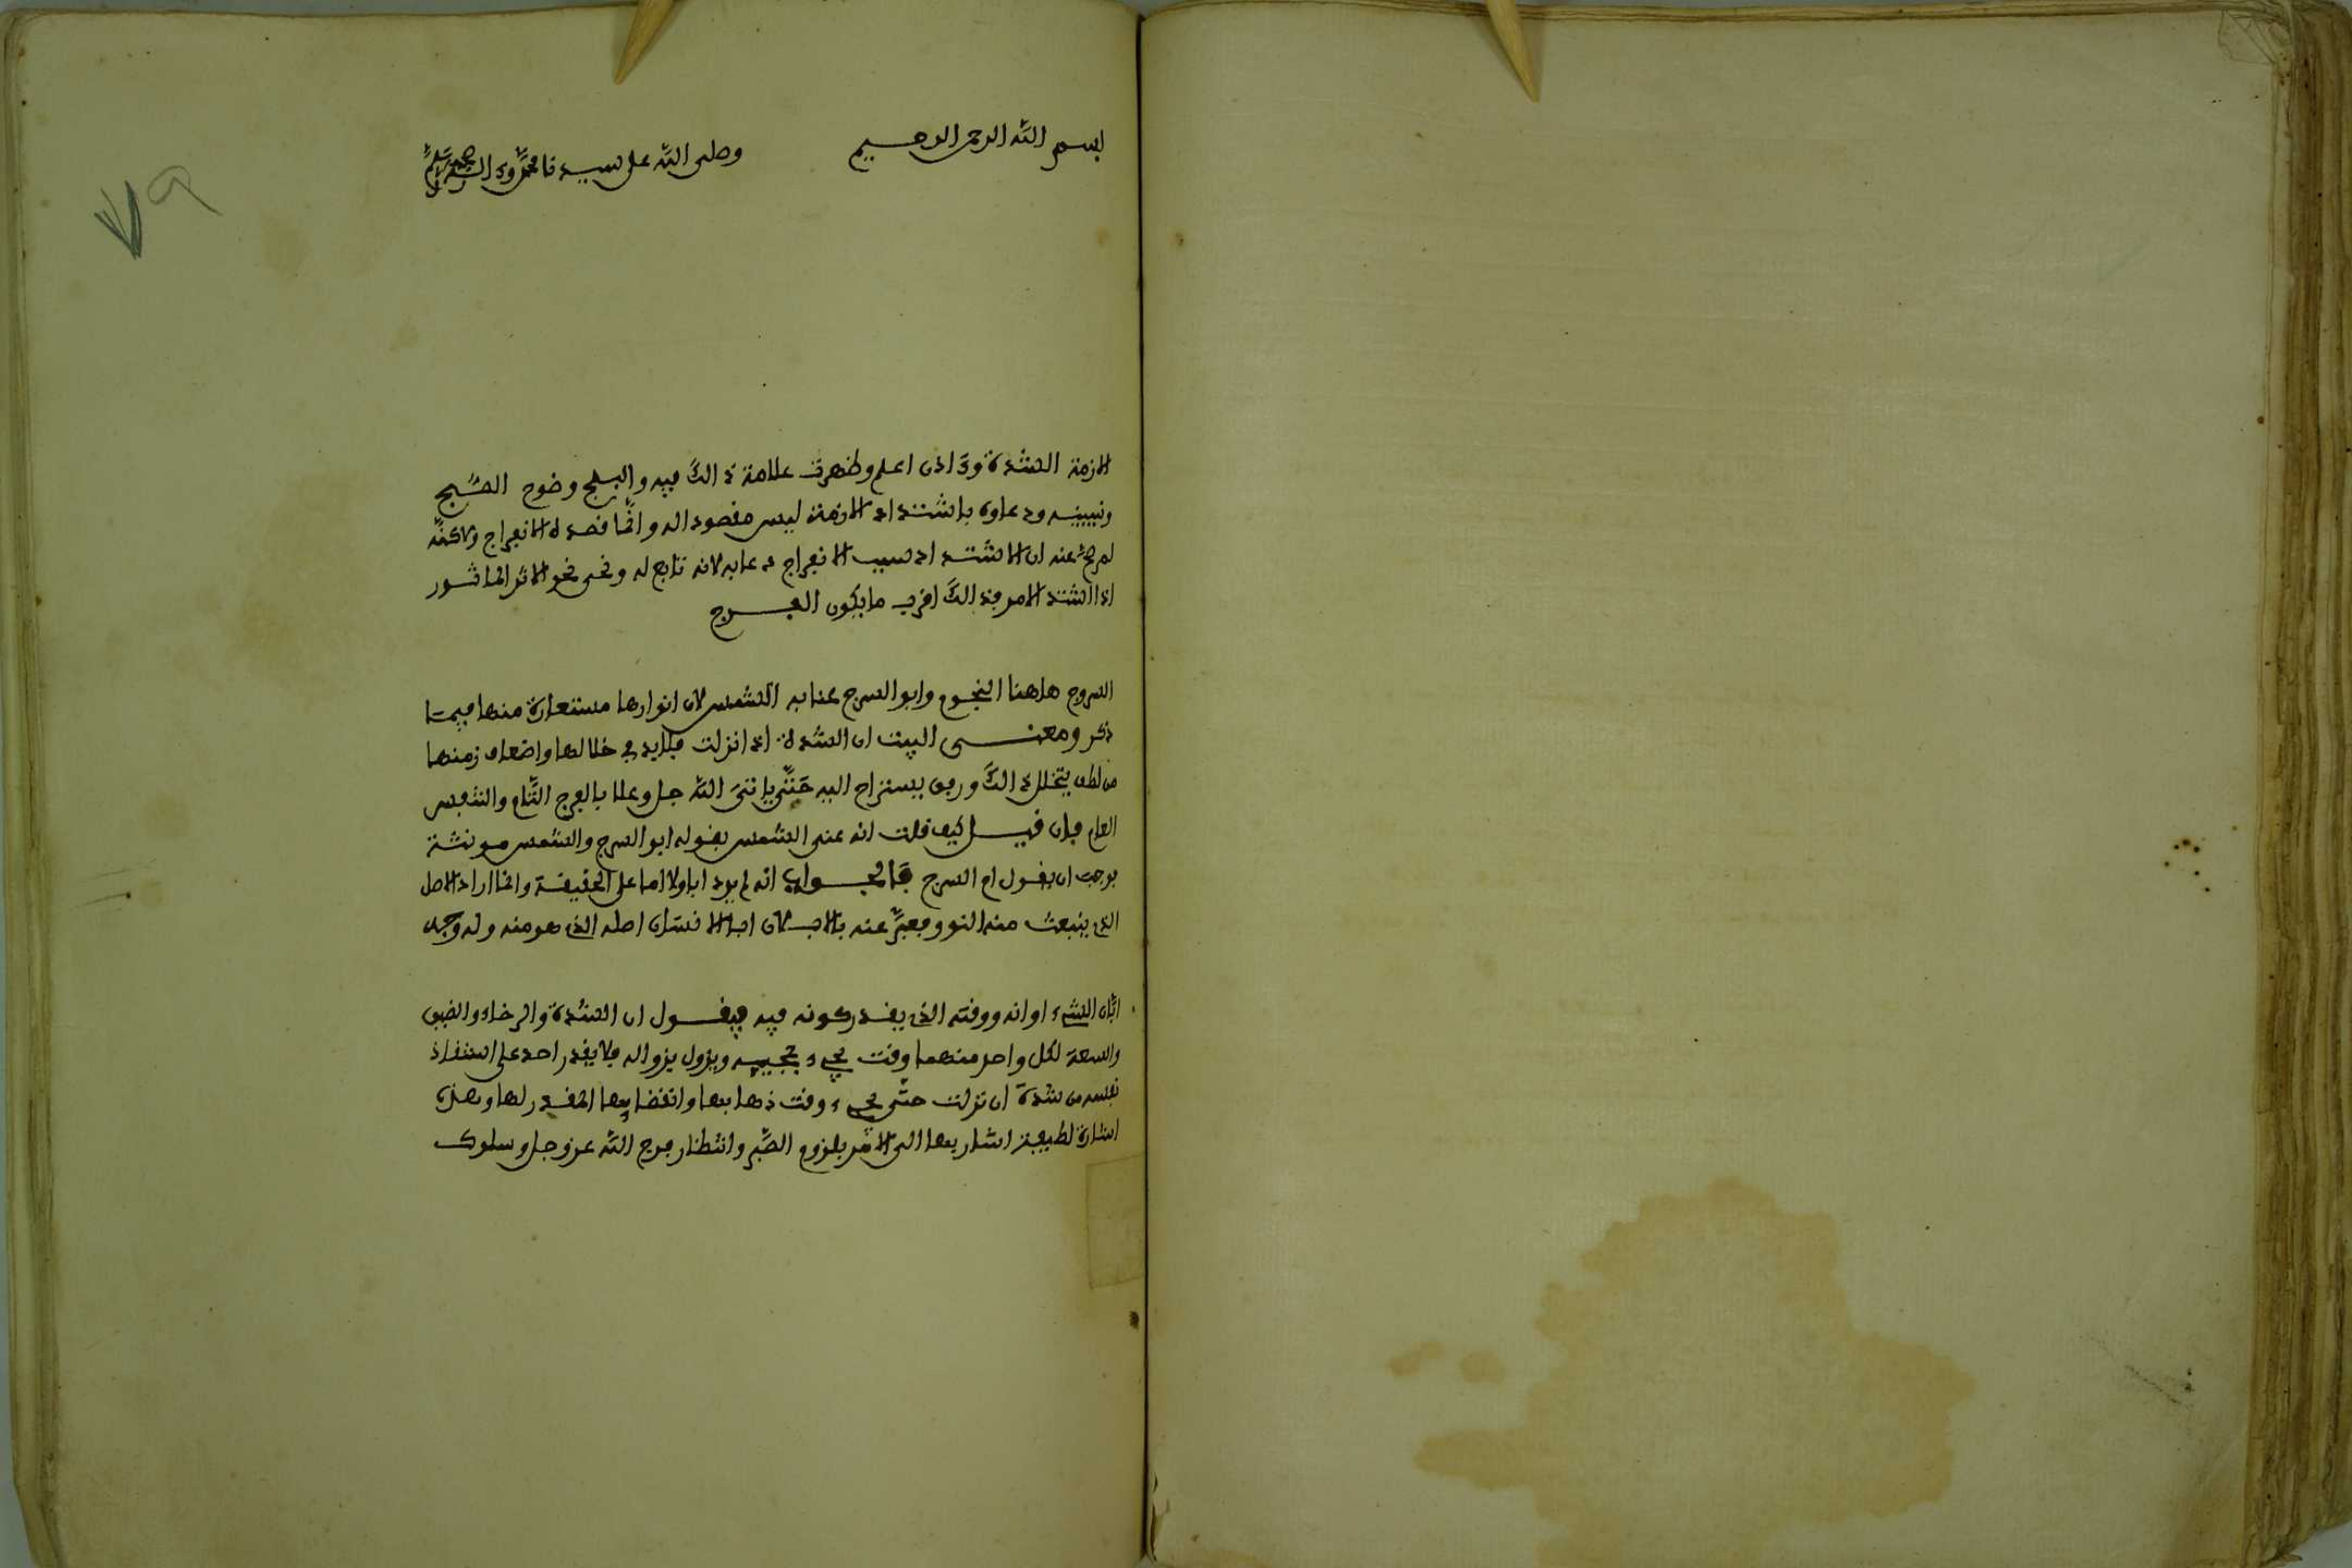 بسم الله الرحمن الرحيم وصلى الله على سيدنا محمد وءاله وصحبه وسلم
٧٩
الازمة الشدة وءاذن اعلم وظهرت علامة ذالك فيه والبلج وضوح الصبح
وتبيينه ودعاوه باشتداد الازمة ليس مقصودا له وانما قصده الانفراج ولاكنه
لم صح عنه ان الاشتداد سبب الانفراج دعا به لانه تابع له ونحى نحو الاثر الماثور
اذا اشتد الامر فذالك اقرب ما يكون الفرج
السروج هاهنا النجوم وابو السرج عنا به الشمس لان انوارها مستعارة منها فيما
ذكر ومعنى البيت ان الشدة اذا نزلت فلابد في خلالها واضعاف زمنها
من لطف يتخلل ذالك ورفق يستراح اليه حتى ياتي الله جل وعلا بالفرج التام والتنفيس
العام فان قيل كيف قلت انه عنى الشمس بقوله ابو السرج والشمس مونثة
فوجب ان يقول ام السرج فالجواب انه لم يرد ابا ولا اما على الحقيقة وانما اراد الاصل
الذي ينبعث منه النور فعبر عنه بالاب لان اب الانسان اصله الذي هو منه وله وجه
ابان الشيء اوانه ووقته الذي يقدر كونه فيه فيقول ان الشدة والرخاء والضيق
والسعة لكل واحد منهما وقت يجيء بمجييه ويزول بزواله فلا يقدر احد على استنفاذ
نفسه من شدة ان نزلت حتى يجيء وقت ذهابها وانقضايها المقدر لها وهذه
اشارة لطيفة اشار بها الى الامر بلزوم الصبر وانتظار فرج الله عز وجل وسلوك